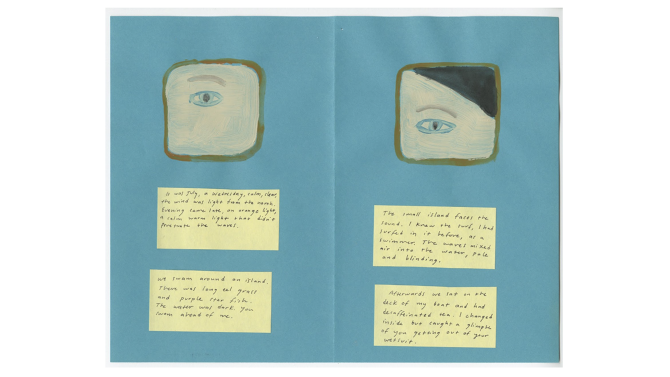 It was July, a Wednesday, calm, clear,
the wind was light from the north.
Evening came late, an orange light,
a calm warm light that didn't
penetrate the waves.
We swam around an island.
There was long eel grass
and purple star fish.
The water was dark you
swam ahead of me.
The small island faces the
sound. I knew the surf, I had
surfed in it before, as a
swimmer. The waves mixed
air into the water, pale
and blinding.
Afterwards we sat on the
deck of my boat and had
decaffeinated tea. I changed
inside but caught a glimpse
of you getting out of your
wetsuit.